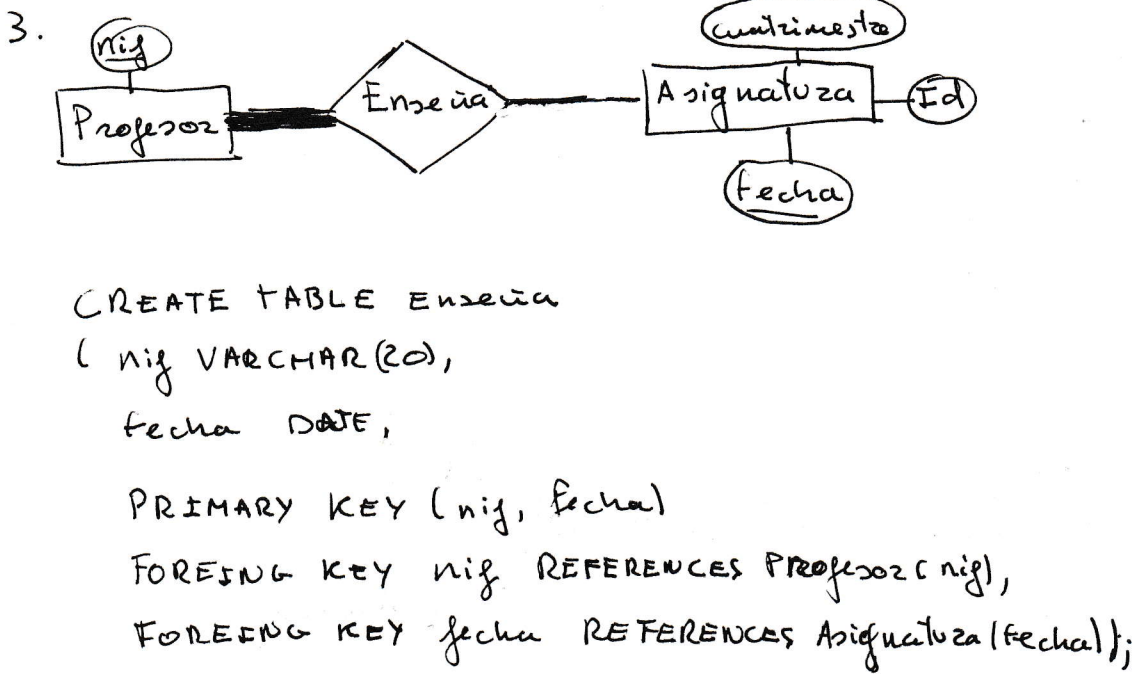 3.
nif
Profesor
Enseña
cuatrimestre
Asignatura
Id
fecha
3.
CREATE TABLE Enseña
( nif VARCHAR(20),
fecha DATE,
PRIMARY KEY (nif, fecha)
FOREING KEY nif REFERENCES Profesor(nif),
FOREING KEY fecha REFERENCES Asignatura(fecha));